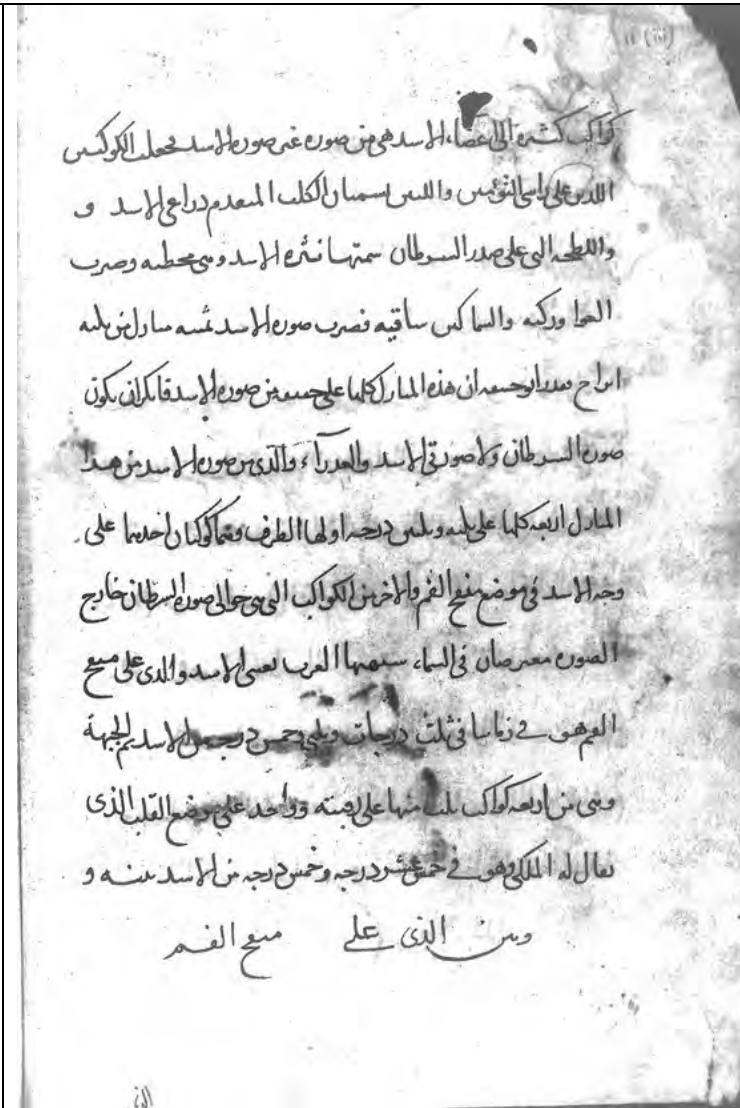 11 (iii)
كواكب كثيرة الى اعضاء الاسد هي من صورة غير صورة الاسد فجعلت الكوكبين
اللذين على راسي التوئمين واللذين يسميان الكلب المتقدم ذراعي الاسد و
واللطخة التي على صدر السرطان سمتها نثرة الاسد وهي محطته وصيرت
العوا وركيه والسماكين ساقيه فصيرت صورة الاسد ثمنية منازل من ثلثة
ابراج فقدر ابو حنيفة ان هذه المنازل كلها على حقيقة من صورة الاسد فانكر ان يكون
صورة السرطان ولا صورتي الاسد والعذراء والذي من صورة الاسد من هذا
المنازل اربعة كلها على ثلثة وثلثين درجة اولها الطرف وهما كوكبان احدهما على
وجه الاسد في موضع منفتح الفم والاخر من الكواكب التي هي حوالى صورة السرطان خارج
الصورة معترضان في السماء سبهتها العرب بعيني الاسد والذي على منفتح
الفم هو في زماننا في ثلث درجات وثلثي وخمس درجة من الاسد ثم الجبهة
وهي من اربعة كواكب ثلث منها على رقبته وواحد على موضع القلب الذي
يقال له الملكي وهو في خمس عشر درجة وخمس درجة من الاسد بينه و
وبين الذي على منفتح الفم